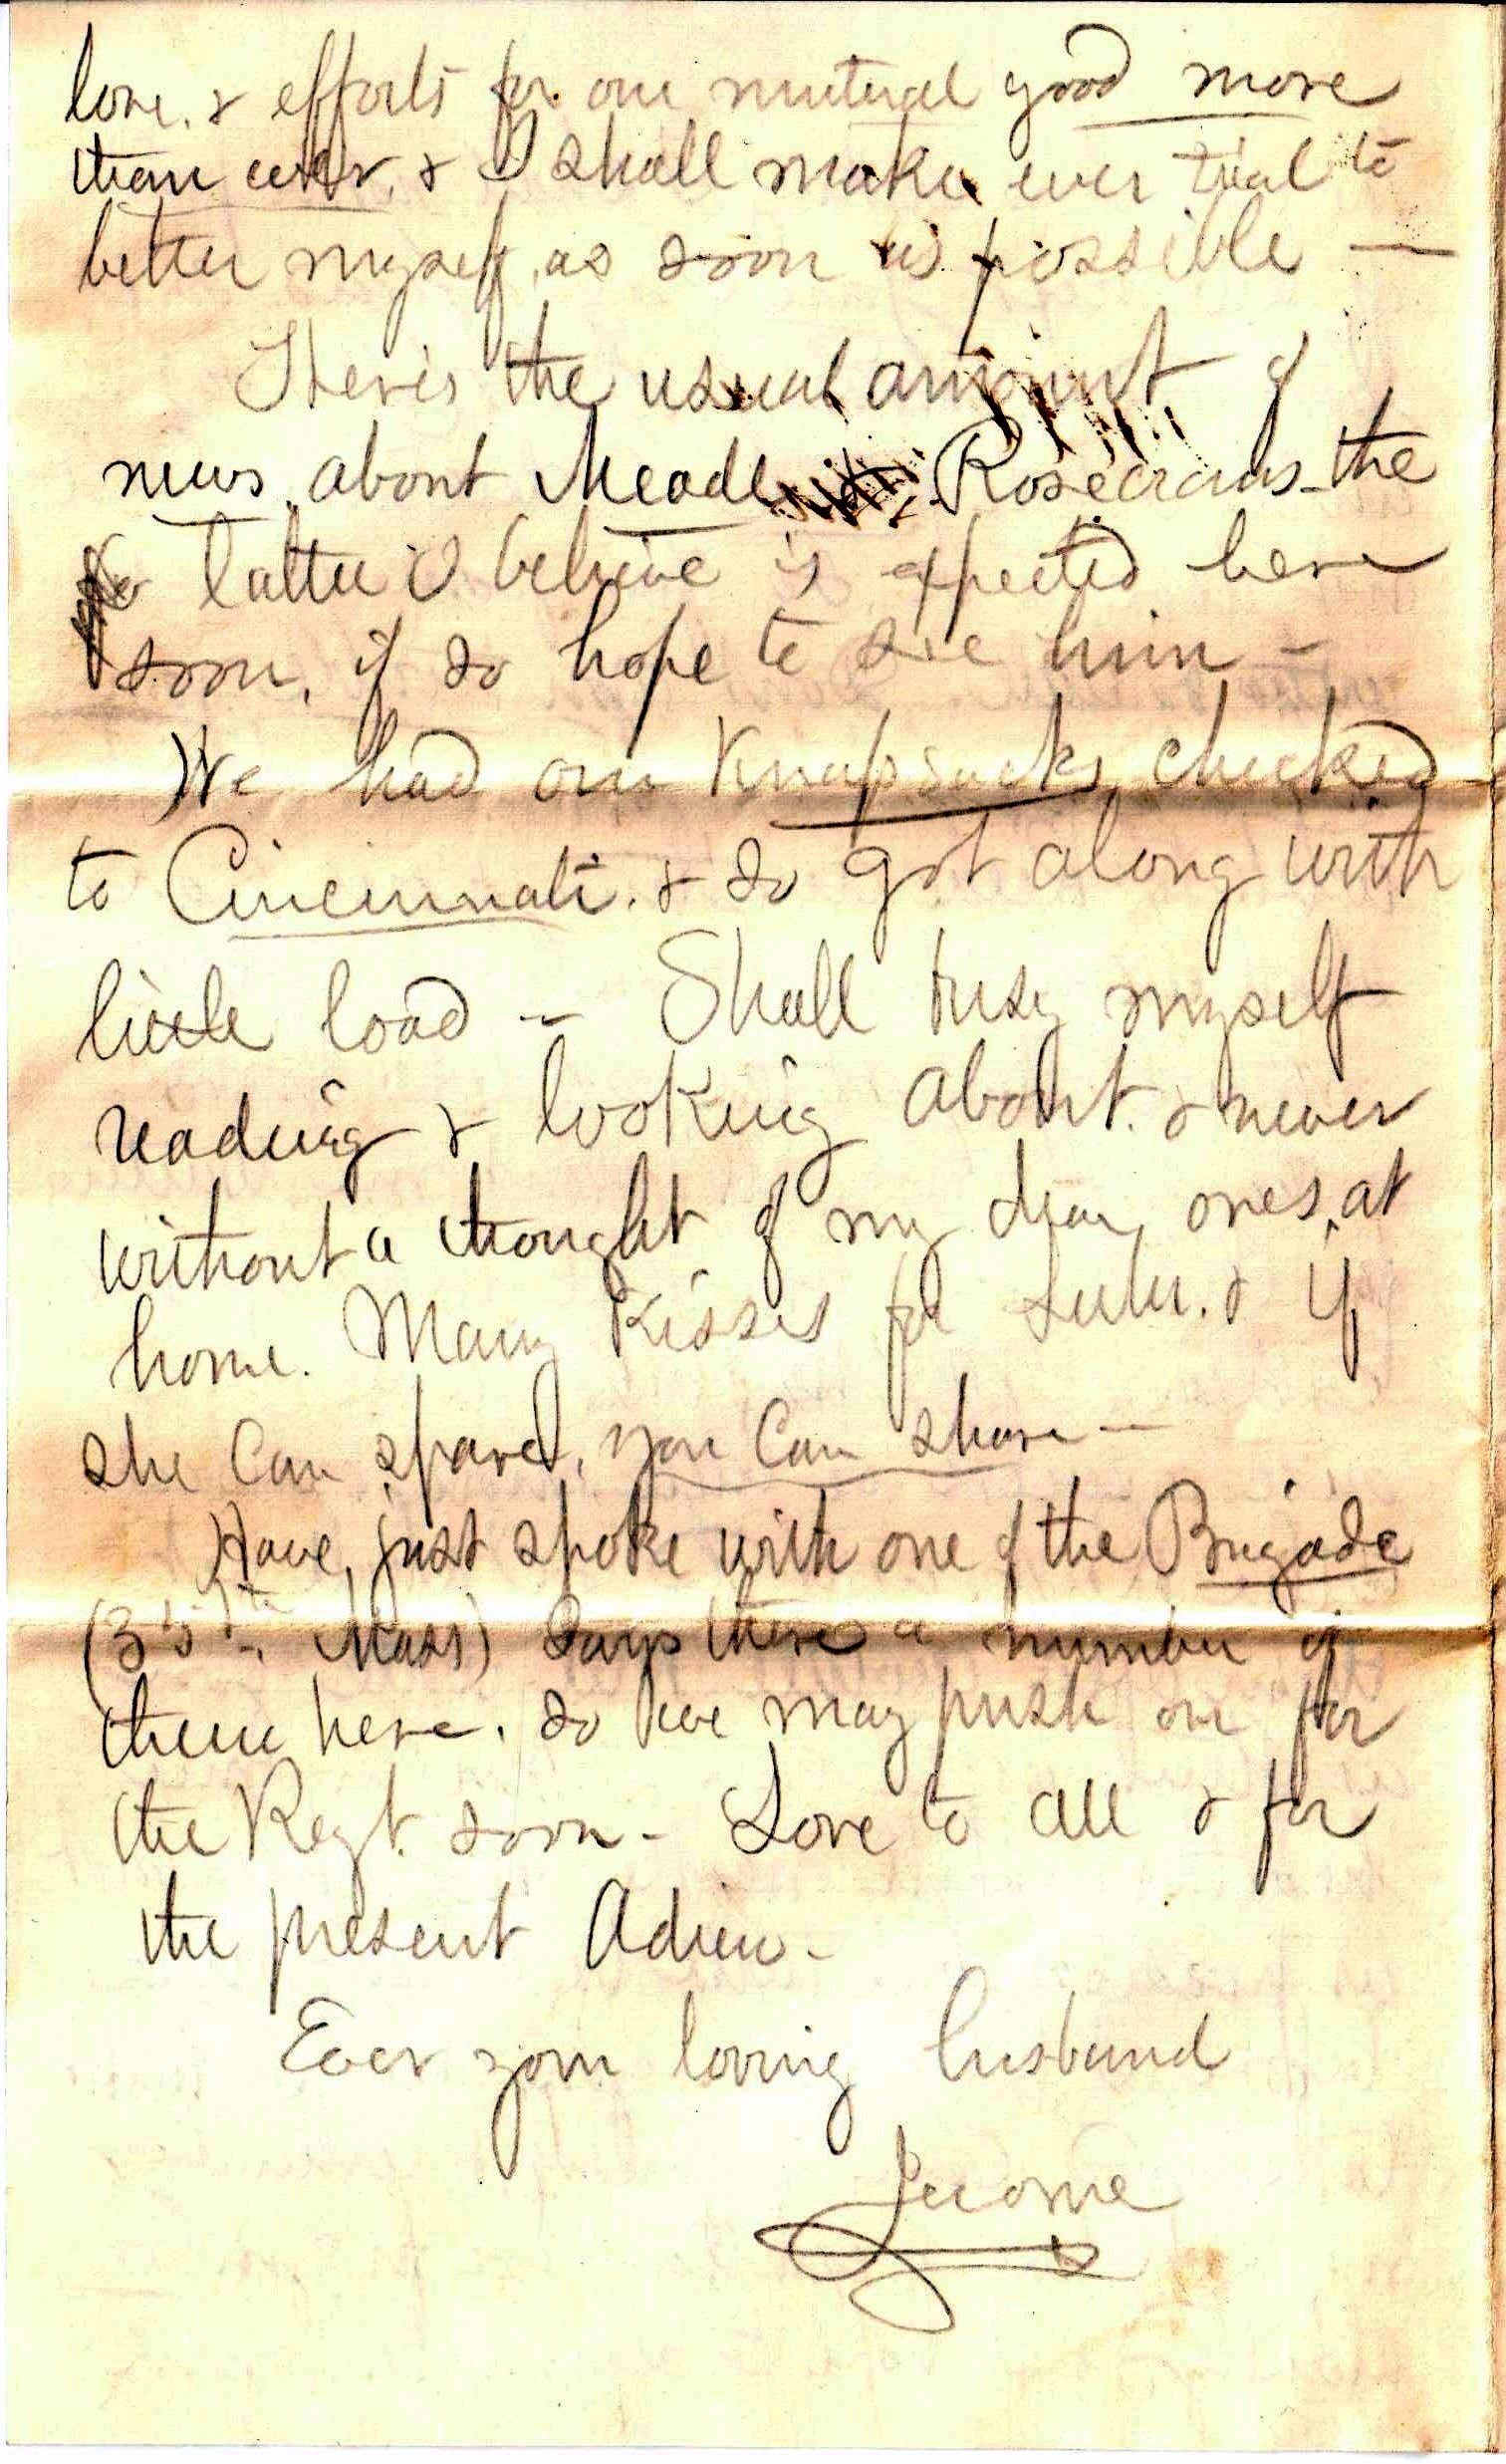 love. & efforts for our mutual good more
than ever, & I shall make ever trial to
better myself, as soon as possible —
Heres the usual amount of
news, about Meade & Rosecrans - the
latter I believe is expected here
soon, if so hope to see him -
We had our Knapsacks, checked
to Cincinnati. & so got along with
little load - Shall busy myself
reading & looking about. & never
without a thought of my dear ones, at
home. Many Kisses for Lulu. & if
she can spare, you can share —
Have, just spoke with one of the Brigade
(35th Mass) Says theres a number of
them here. so we may push on for
the Regt. soon - Love to all & for
the present Adieu -
Ever your loving husband
Jerome